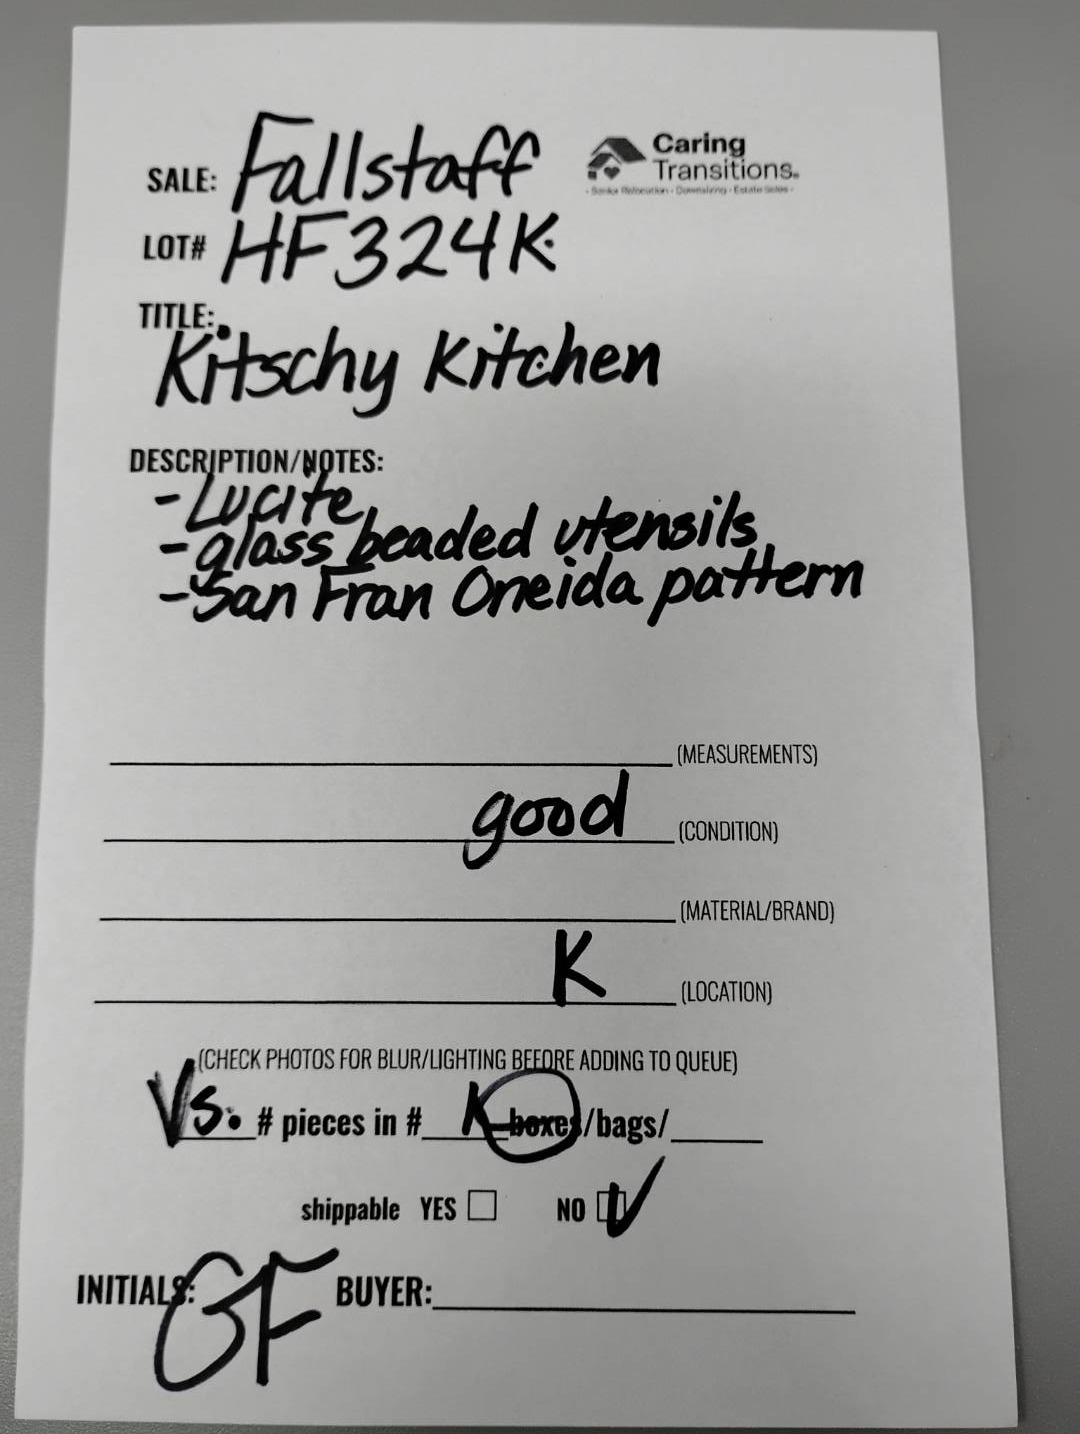 SALE: Fallstaff
Caring
Transitions®
- Senior Relocation - Downsizing - Estate Sales -
LOT# HF324K
TITLE:
Kitschy Kitchen
DESCRIPTION/NOTES:
- Lucite
- glass beaded utensils
- San Fran Oneida pattern
(MEASUREMENTS)
good (CONDITION)
(MATERIAL/BRAND)
K (LOCATION)
(CHECK PHOTOS FOR BLUR/LIGHTING BEFORE ADDING TO QUEUE)
Vs. # pieces in # K boxes/bags/
shippable YES NO
INITIALS: GF BUYER: